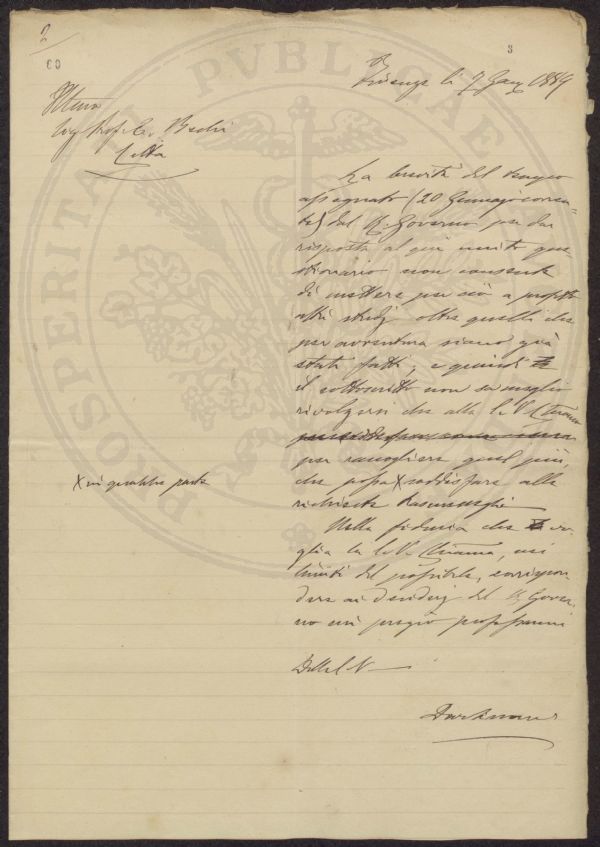 2
60
3
Firenze li 7 Gen 1889
Illmo
Sig Prof. E. Bechi
Città
La brevità del tempo
assegnato (20 Gennajo corren-
te) dal R. Governo per dar
risposta al qui unito que-
stionario non consente
di mettere per ciò a profitto
altri studj oltre quelli che
per avventura siano già
stati fatti, e quindi
il sottoscritto non sa meglio
rivolgersi che alla S. V. Illma
per raccogliere quel più,
che possa X soddisfare alla
richiesta
X in qualche parte
Nella fiducia che vo-
glia la S. V. Illma, nei
limiti del possibile, corrispon-
dere ai desiderj del R. Gover-
no mi pregio professarmi
Della S. V.